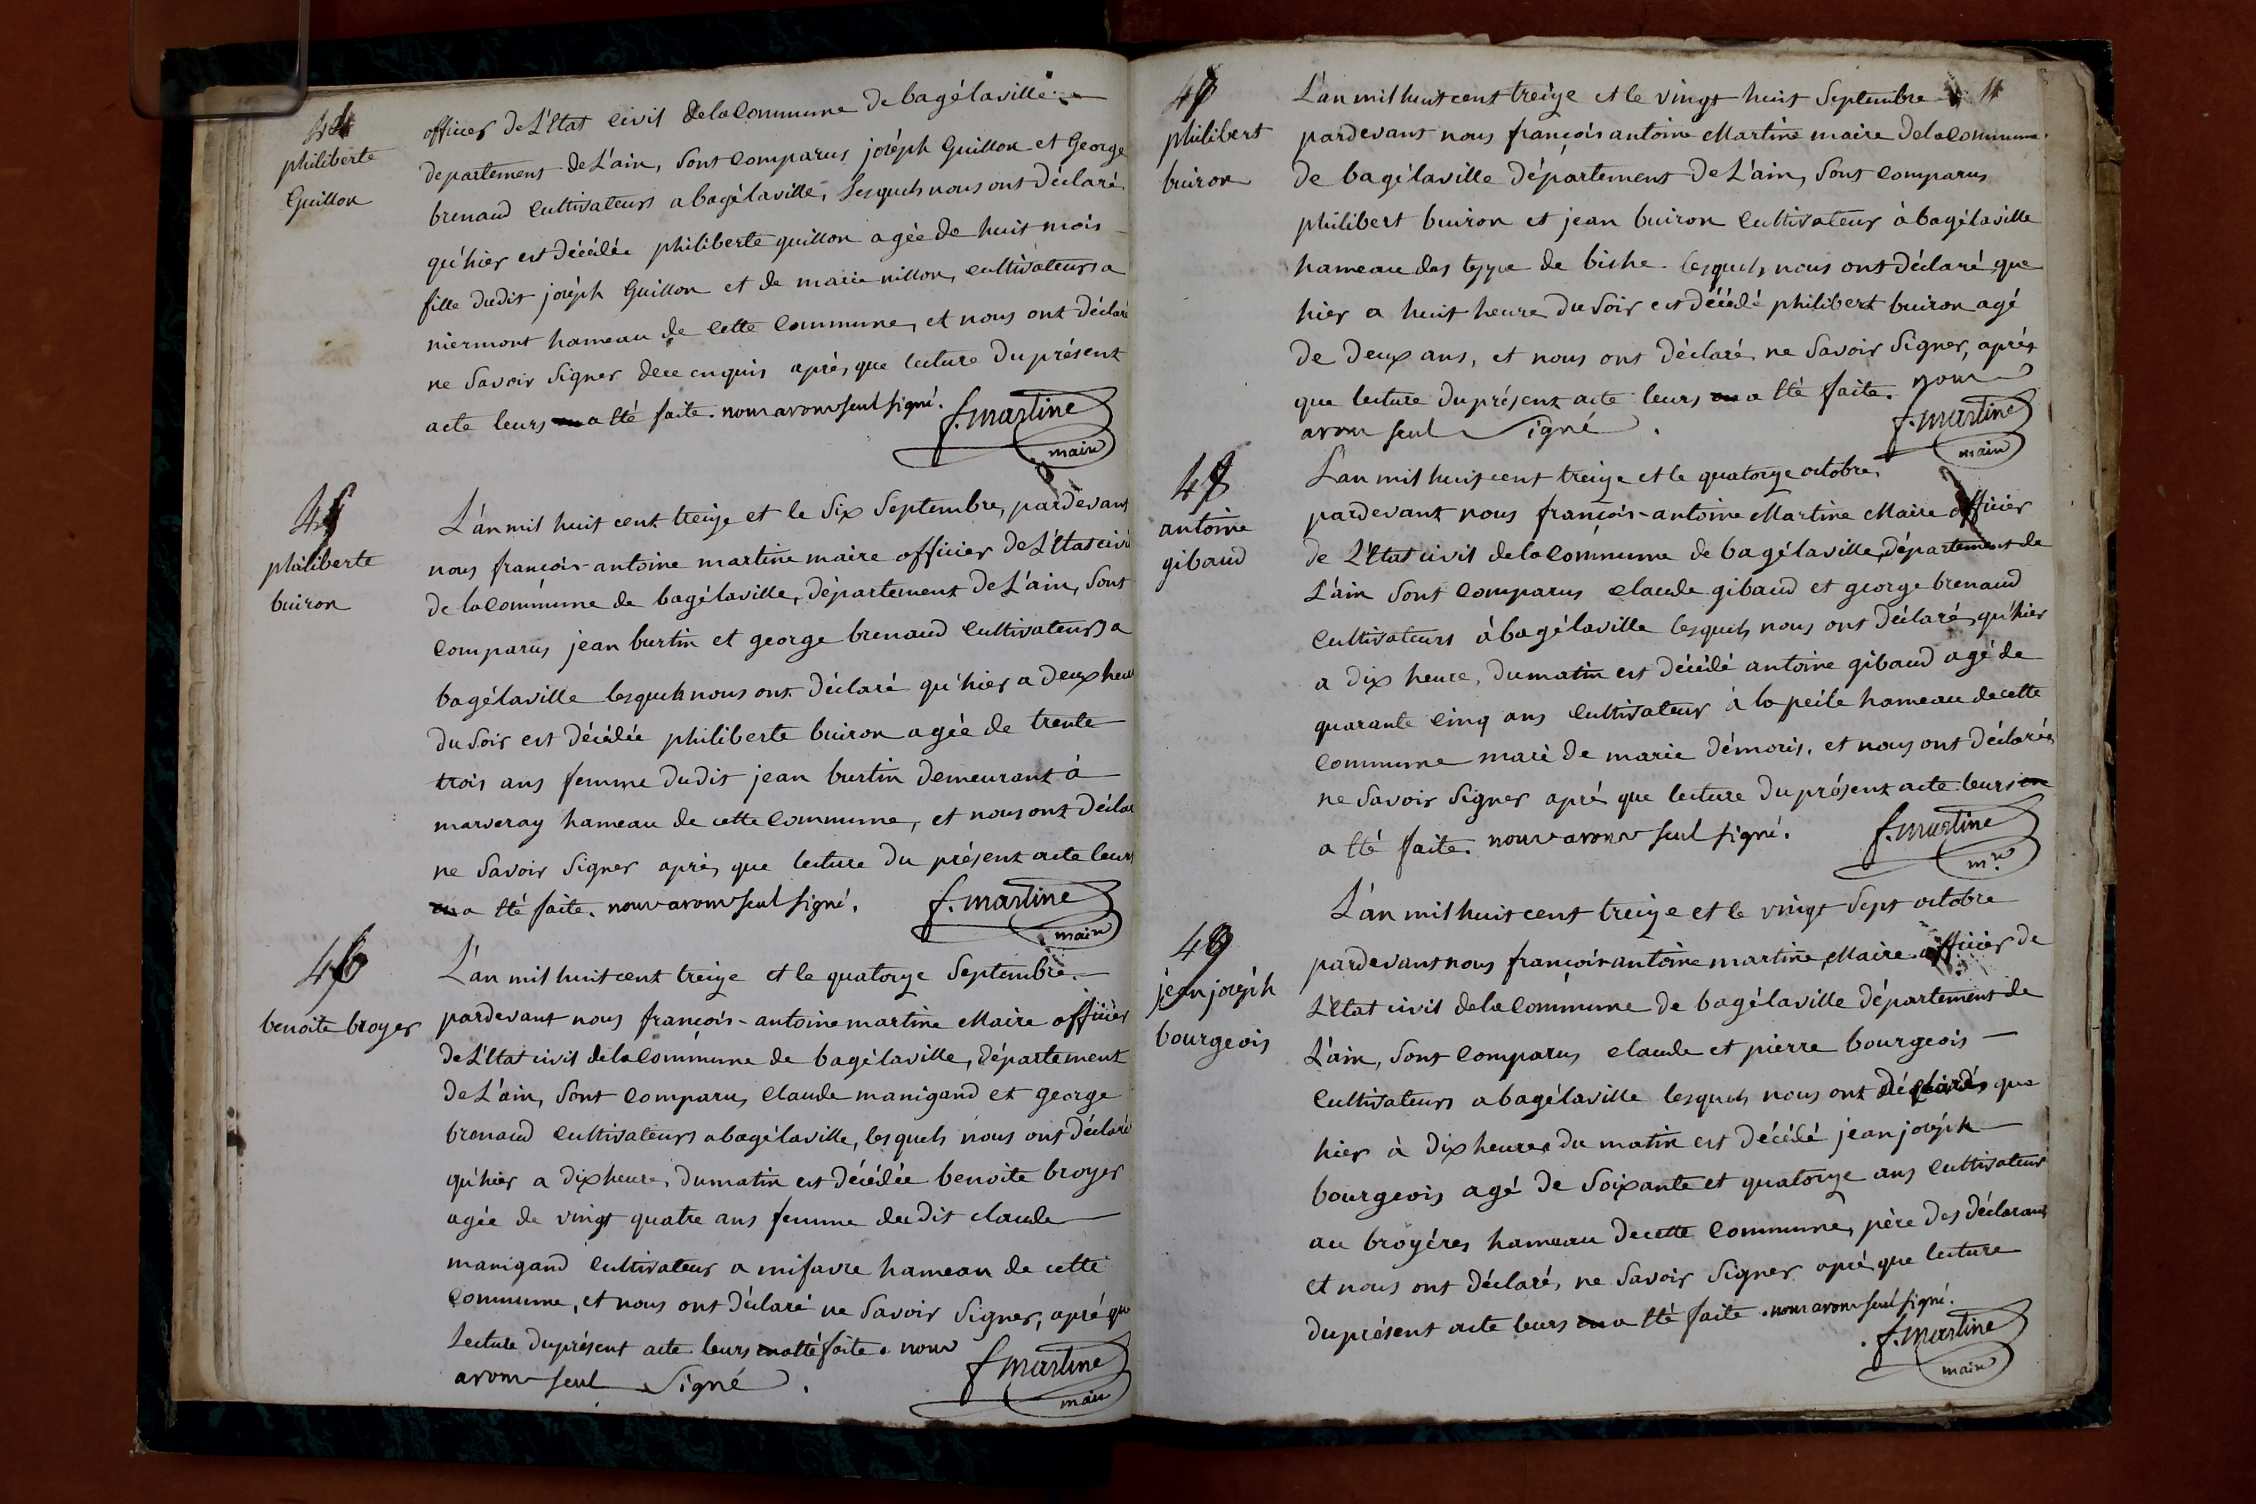 44
philiberte
Guillon
officier de L'Etat civil de la Commune de bagélaville
departement de L'ain, sont comparus joséph Guillon et George
brenaud cultivateurs a bagélaville, Lesquels nous ont déclaré
qu'hier est décédée philiberte guillon agée de huit mois
fille dudit joséph Guillon et de marie nillon, cultivateurs a
niermont hameau de cette commune, et nous ont déclaré
ne savoir signer de ce enquis après que lecture du présent
acte leurs a été faite. nous avons seul signé.
f. martine
maire
45
philiberte
buiron
L'an mil huit cent treize et le six septembre, pardevant
nous françois-antoine martine maire officier de L'Etat civil
de la Commune de bagélaville, département de L'ain, sont
comparus jean burtin et george brenaud cultivateurs a
bagélaville lesquels nous ont déclaré qu'hier a deux heures
du soir est décédée philiberte buiron agée de trente
trois ans femme dudit jean burtin demeurant à
marveray hameau de cette commune, et nous ont déclaré
ne savoir signer après que lecture du présent acte leurs
a été faite. nous avons seul signé.
f. martine
maire
46
benoite broyer
L'an mil huit cent treize et le quatorze septembre
pardevant nous françois-antoine martine Maire officier
de L'Etat civil de la Commune de bagélaville, département
de L'ain, sont comparus claude manigand et george
brenaud cultivateurs a bagélaville, lesquels nous ont déclaré
qu'hier a dix heures du matin est décédée benoite broyer
agée de vingt quatre ans femme dudit claude
manigand cultivateur a mifavre hameau de cette
commune, et nous ont déclaré ne savoir signer, apré que
lecture du présent acte leurs a été faite. nous
avons seul signé.
f martine
maire
47
philibert
buiron
L'an mil huit cent treize et le vingt huit septembre
pardevant nous françois antoine Martine maire de la commune
de bagélaville département de L'ain, sont comparus
philibert buiron et jean buiron cultivateur à bagélaville
hameau des teppe de bishe. lesquels nous ont déclaré que
hier a huit heure du soir est décédé philibert buiron agé
de deux ans, et nous ont déclaré ne savoir signer, après
que lecture du présent acte leurs a été faite. nous
avons seul signé.
f. martine
maire
48
antoine
gibaud
L'an mil huit cent treize et le quatorze octobre
pardevant nous françois-antoine Martine Maire officier
de L'Etat civil de la Commune de bagélaville, département de
L'ain sont comparus claude gibaud et george brenaud
cultivateurs à bagélaville lesquels nous ont déclaré qu'hier
a dix heure, du matin est décédé antoine gibaud agé de
quarante cinq ans cultivateur à la peile hameau de cette
commune mari de marie démoris, et nous ont déclarés
ne savoir signer apré que lecture du présent acte leurs
a été faite. nous avons seul signé.
f. martine
m.re
49
jean joséph
bourgeois
L'an mil huit cent treize et le vingt sept octobre
pardevant nous françois antoine martine, Maire officier de
L'Etat civil de la Commune de bagélaville département de
L'ain, sont comparus claude et pierre bourgeois
cultivateurs a bagélaville lesquels nous ont déclarés que
hier à dix heures du matin est décédé jean joséph
bourgeois agé de soixante et quatorze ans cultivateur
au broyéres hameau de cette commune, père des déclarans
et nous ont déclarés ne savoir signer apré que lecture
du présent acte leurs a été faite. nous avons seul signé.
f. martine
maire